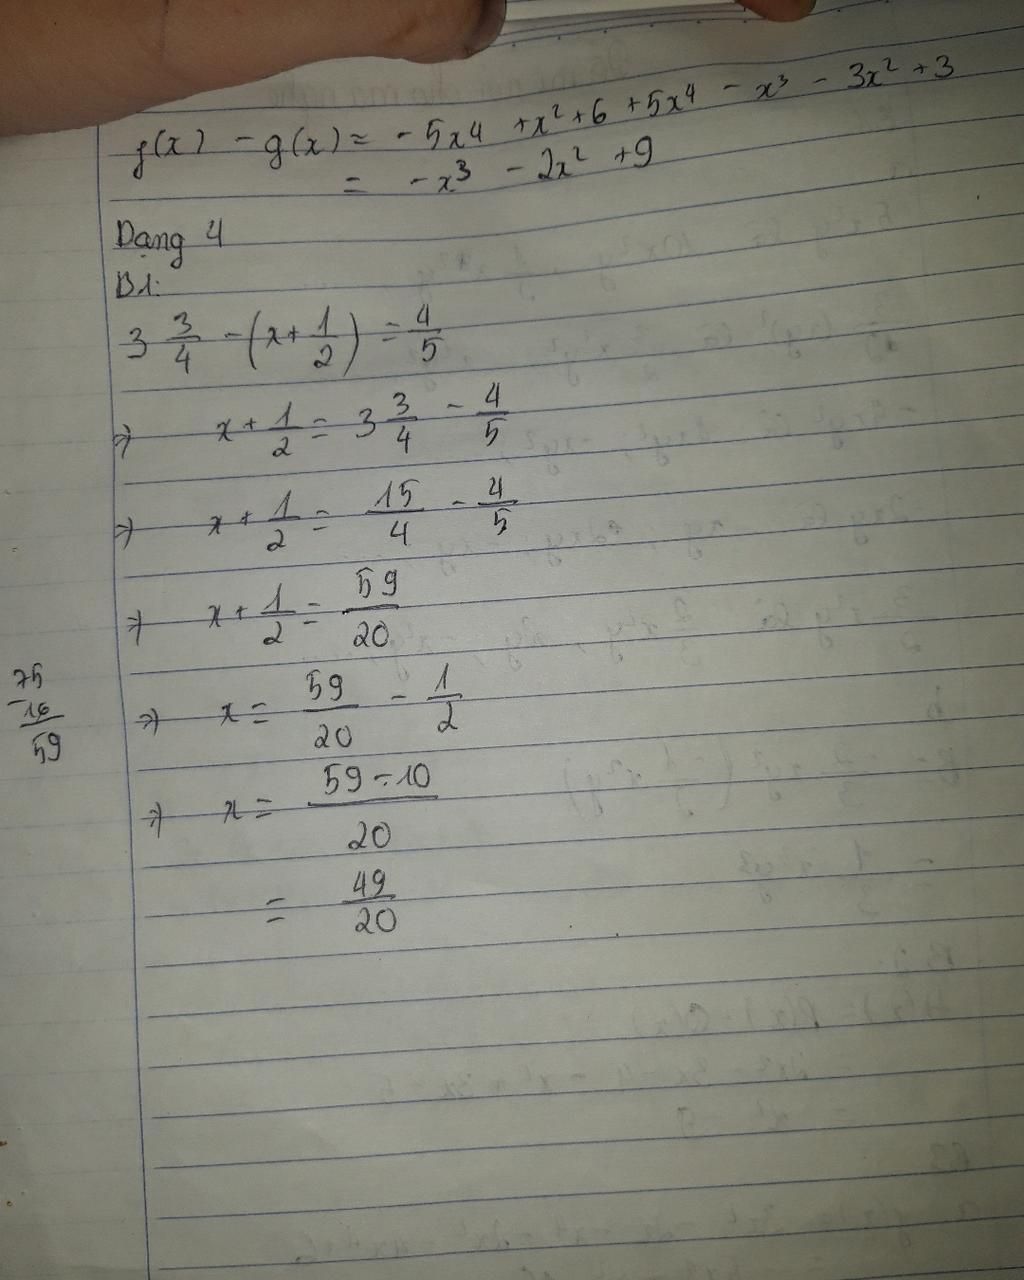 f(x) - g(x) = -5x4 + x² + 6 + 5x⁴ - x³ - 3x² + 3
= -x³ - 2x² + 9
Dạng 4
B1:
3 3/4 - (x + 1/2) = 4/5
=> x + 1/2 = 3 3/4 - 4/5
=> x + 1/2 = 15/4 - 4/5
=> x + 1/2 = 59/20
=> x = 59/20 - 1/2
75
- 16
59
=> x = 59 - 10/20
= 49/20